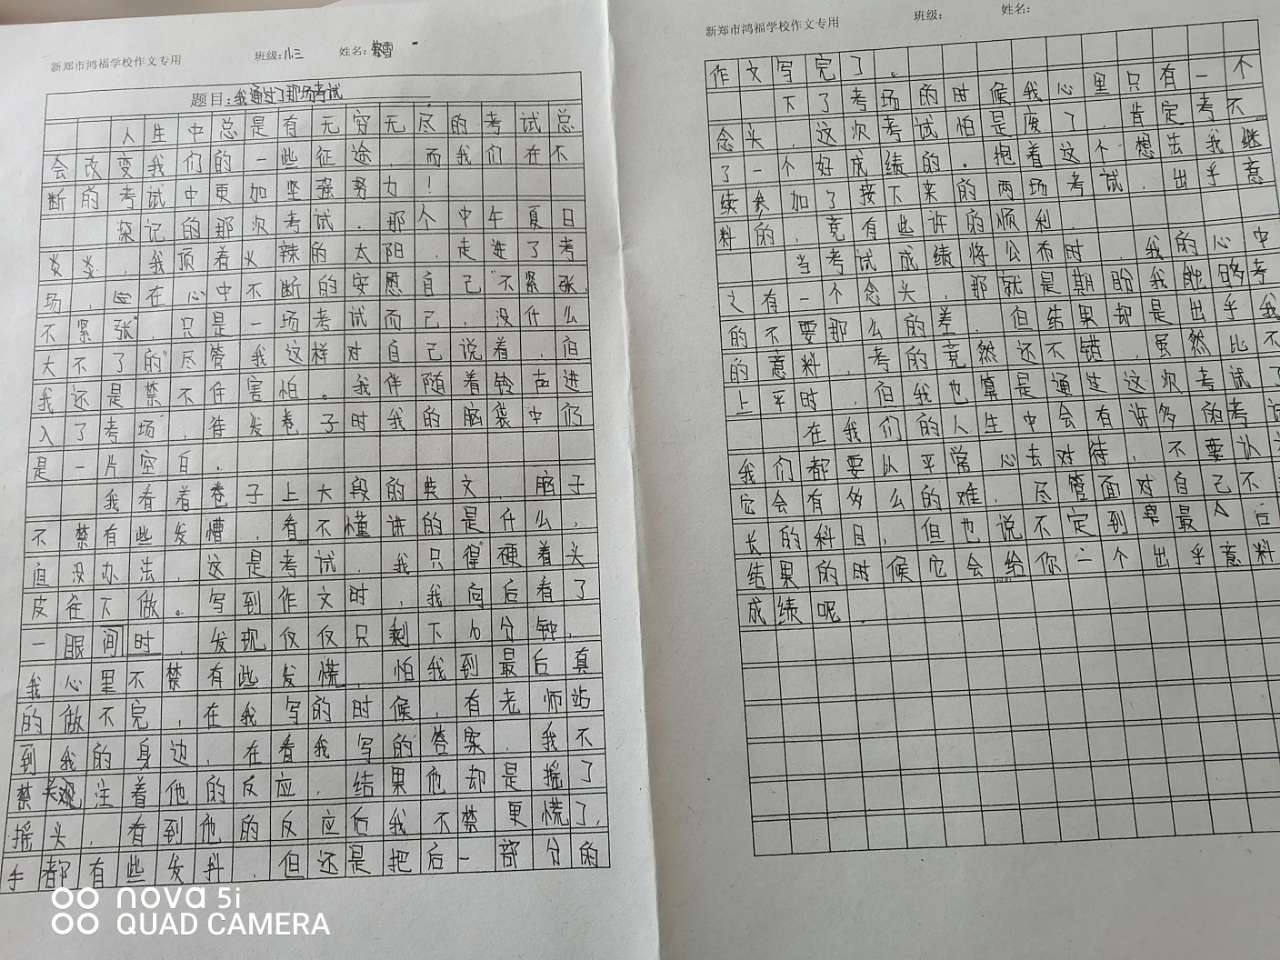 新郑市鸿福学校作文专用 班级:八三 姓名:
题目:我通过了那场考试
人生中总是有无穷无尽的考试总
会改变我们的一些征途,而我们在不
断的考试中更加坚强努力!
深记的那次考试,那个中午夏日
炎炎,我顶着火辣的太阳,走进了考
场,在心中不断的安慰自己"不紧张
不紧张",只是一场考试而已,没什么
大不了的"尽管我这样对自己说着,但
我还是禁不住害怕。我伴随着铃声进
入了考场,等发卷子时我的脑袋中仍
是一片空白.
我看着卷子上大段的文,脑子
不禁有些发懵,看不懂讲的是什么,
但没办法,这是考试,我只得硬着头
皮往下做。写到作文时,我向后看了
一眼间时,发现仅仅只剩下分钟,
我心里不禁有些发慌,怕我到最后真
的做不完,在我写的时候,有老师站
到我的身边,在看我写的答案,我不
禁关注着他的反应,结果他却是摇了
摇头,看到他的反应后我不禁更慌了,
手都有些发抖,但还是把后一部分的
新郑市鸿福学校作文专用 班级: 姓名:
作文写完了。
下了考场的时候我心里只有一个
念头,这次考试怕是废了,肯定考不
了一个好成绩的.抱着这个想法我继
续参加了接下来的两场考试,出乎意
料的,竟有些许的顺利.
当考试成绩将公布时,我的心中
又有一个念头,那就是期盼我能够考
的不要那么的差,但结果却是出乎我
的意料,考的竟然还不错,虽然比不
上平时,但我也算是通过这次考试了
在我们的人生中会有许多的考试
我们都要以平常心去对待,不要认为
它会有多么的难,尽管面对自己不
长的科目,但也说不定到最后
结果的时候它会给你一个出乎意料
成绩呢.
nova 5i
QUAD CAMERA